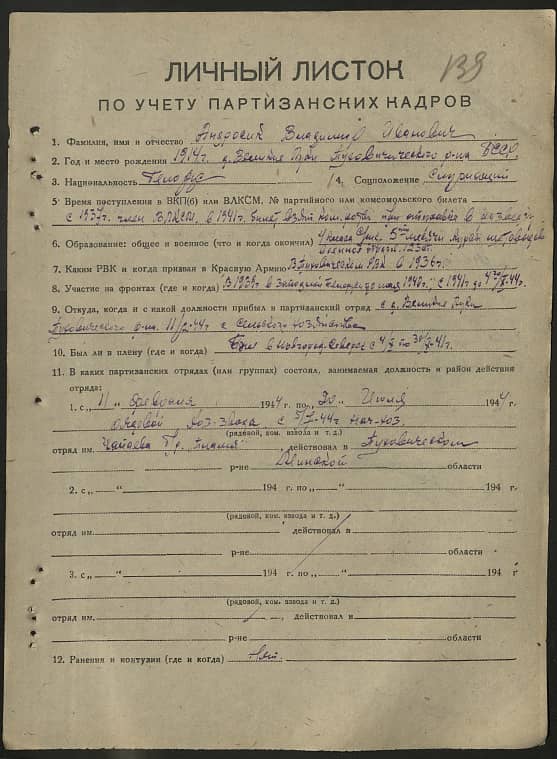 139
ЛИЧНЫЙ ЛИСТОК
ПО УЧЕТУ ПАРТИЗАНСКИХ КАДРОВ
1. Фамилия, имя и отчество Андросик Владимир Иванович
2. Год и место рождения 1914 г. д. Великие Пуховичского р-на БССР
3. Национальность Белорус 4. Соцположение Служащий
5. Время поступления в ВКП(б) или ВЛКСМ, № партийного или комсомольского билета
с 1937 г. член ВЛКСМ, в 1941 г. билет при отправке
6. Образование: общее и военное (что и когда окончил)
7. Каким РВК и когда призван в Красную Армию В Пуховическом РВК в 1936 г.
8. Участие на фронтах (где и когда) В 1939 г. в Западной 1940 г. с 1941
9. Откуда, и когда и с какой должности прибыл в партизанский отряд с д. Великие
Пуховического р-на 11/2-44 г с сельского хозяйства
10. Был ли в плену (где и когда) Был в Новгород-Северск с
11. В каких партизанских отрядах (или группах) состоял, занимаемая должность и район действия
отряда:
1. с „ 11 “ февраля 1944 г. по „ До “ Июля 1944 г.
рядовой хоз-звода с 5/7-44 г нач-хоз.
(рядовой, ком. взвода и т. д.)
отряд им. Чапаева действовал в Пуховическом
р-не Минской области
2. с „ “ 194 г. по „ “ 194 г.
(рядовой, ком. взвода и т. д.)
отряд им. действовал в
р-не области
3. с „ “ 194 г. по „ “ 194 г
(рядовой, ком. взвода и т. д.)
отряд им. , действовал в
р-не области
12. Ранения и контузии (где и когда) Нет.